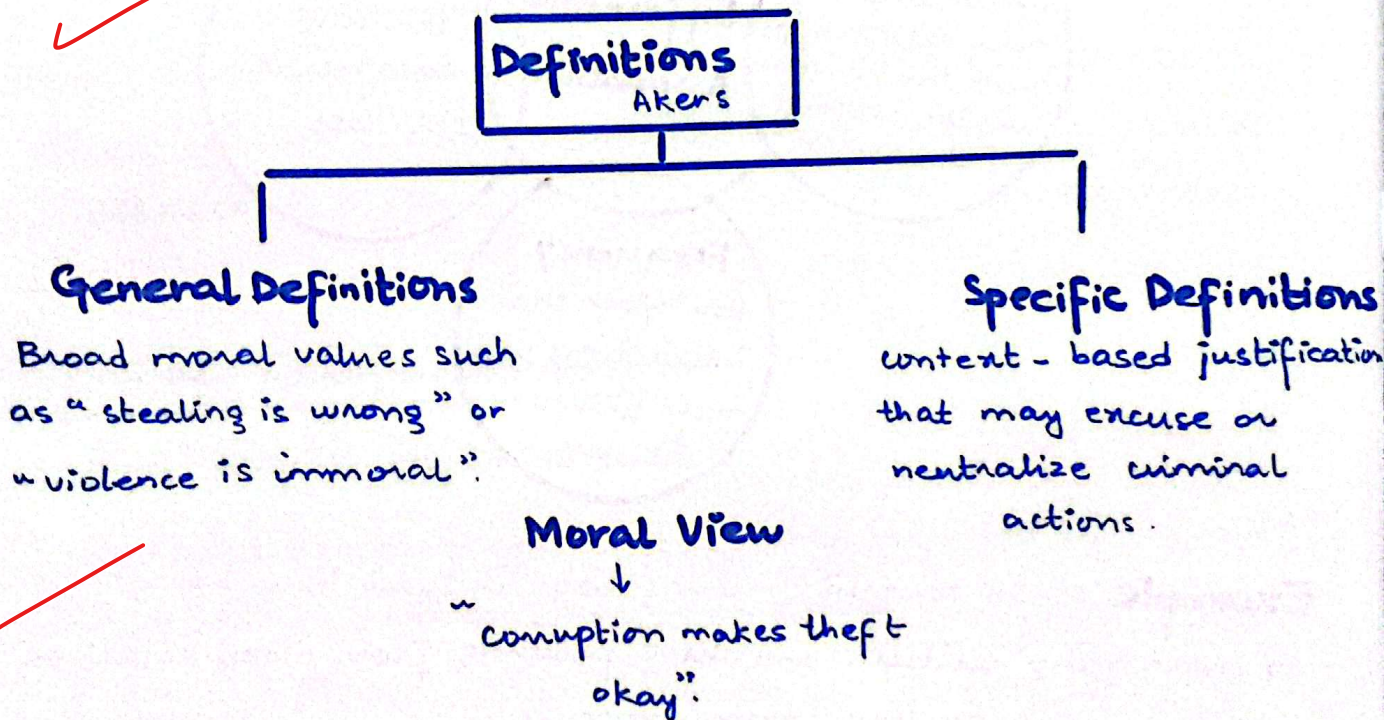 Definitions
Akers
General Definitions
Broad moral values such
as "stealing is wrong" or
"violence is immoral".
Specific Definitions
context - based justification
that may excuse or
neutralize criminal
actions.
Moral View
↓
"corruption makes theft
okay".